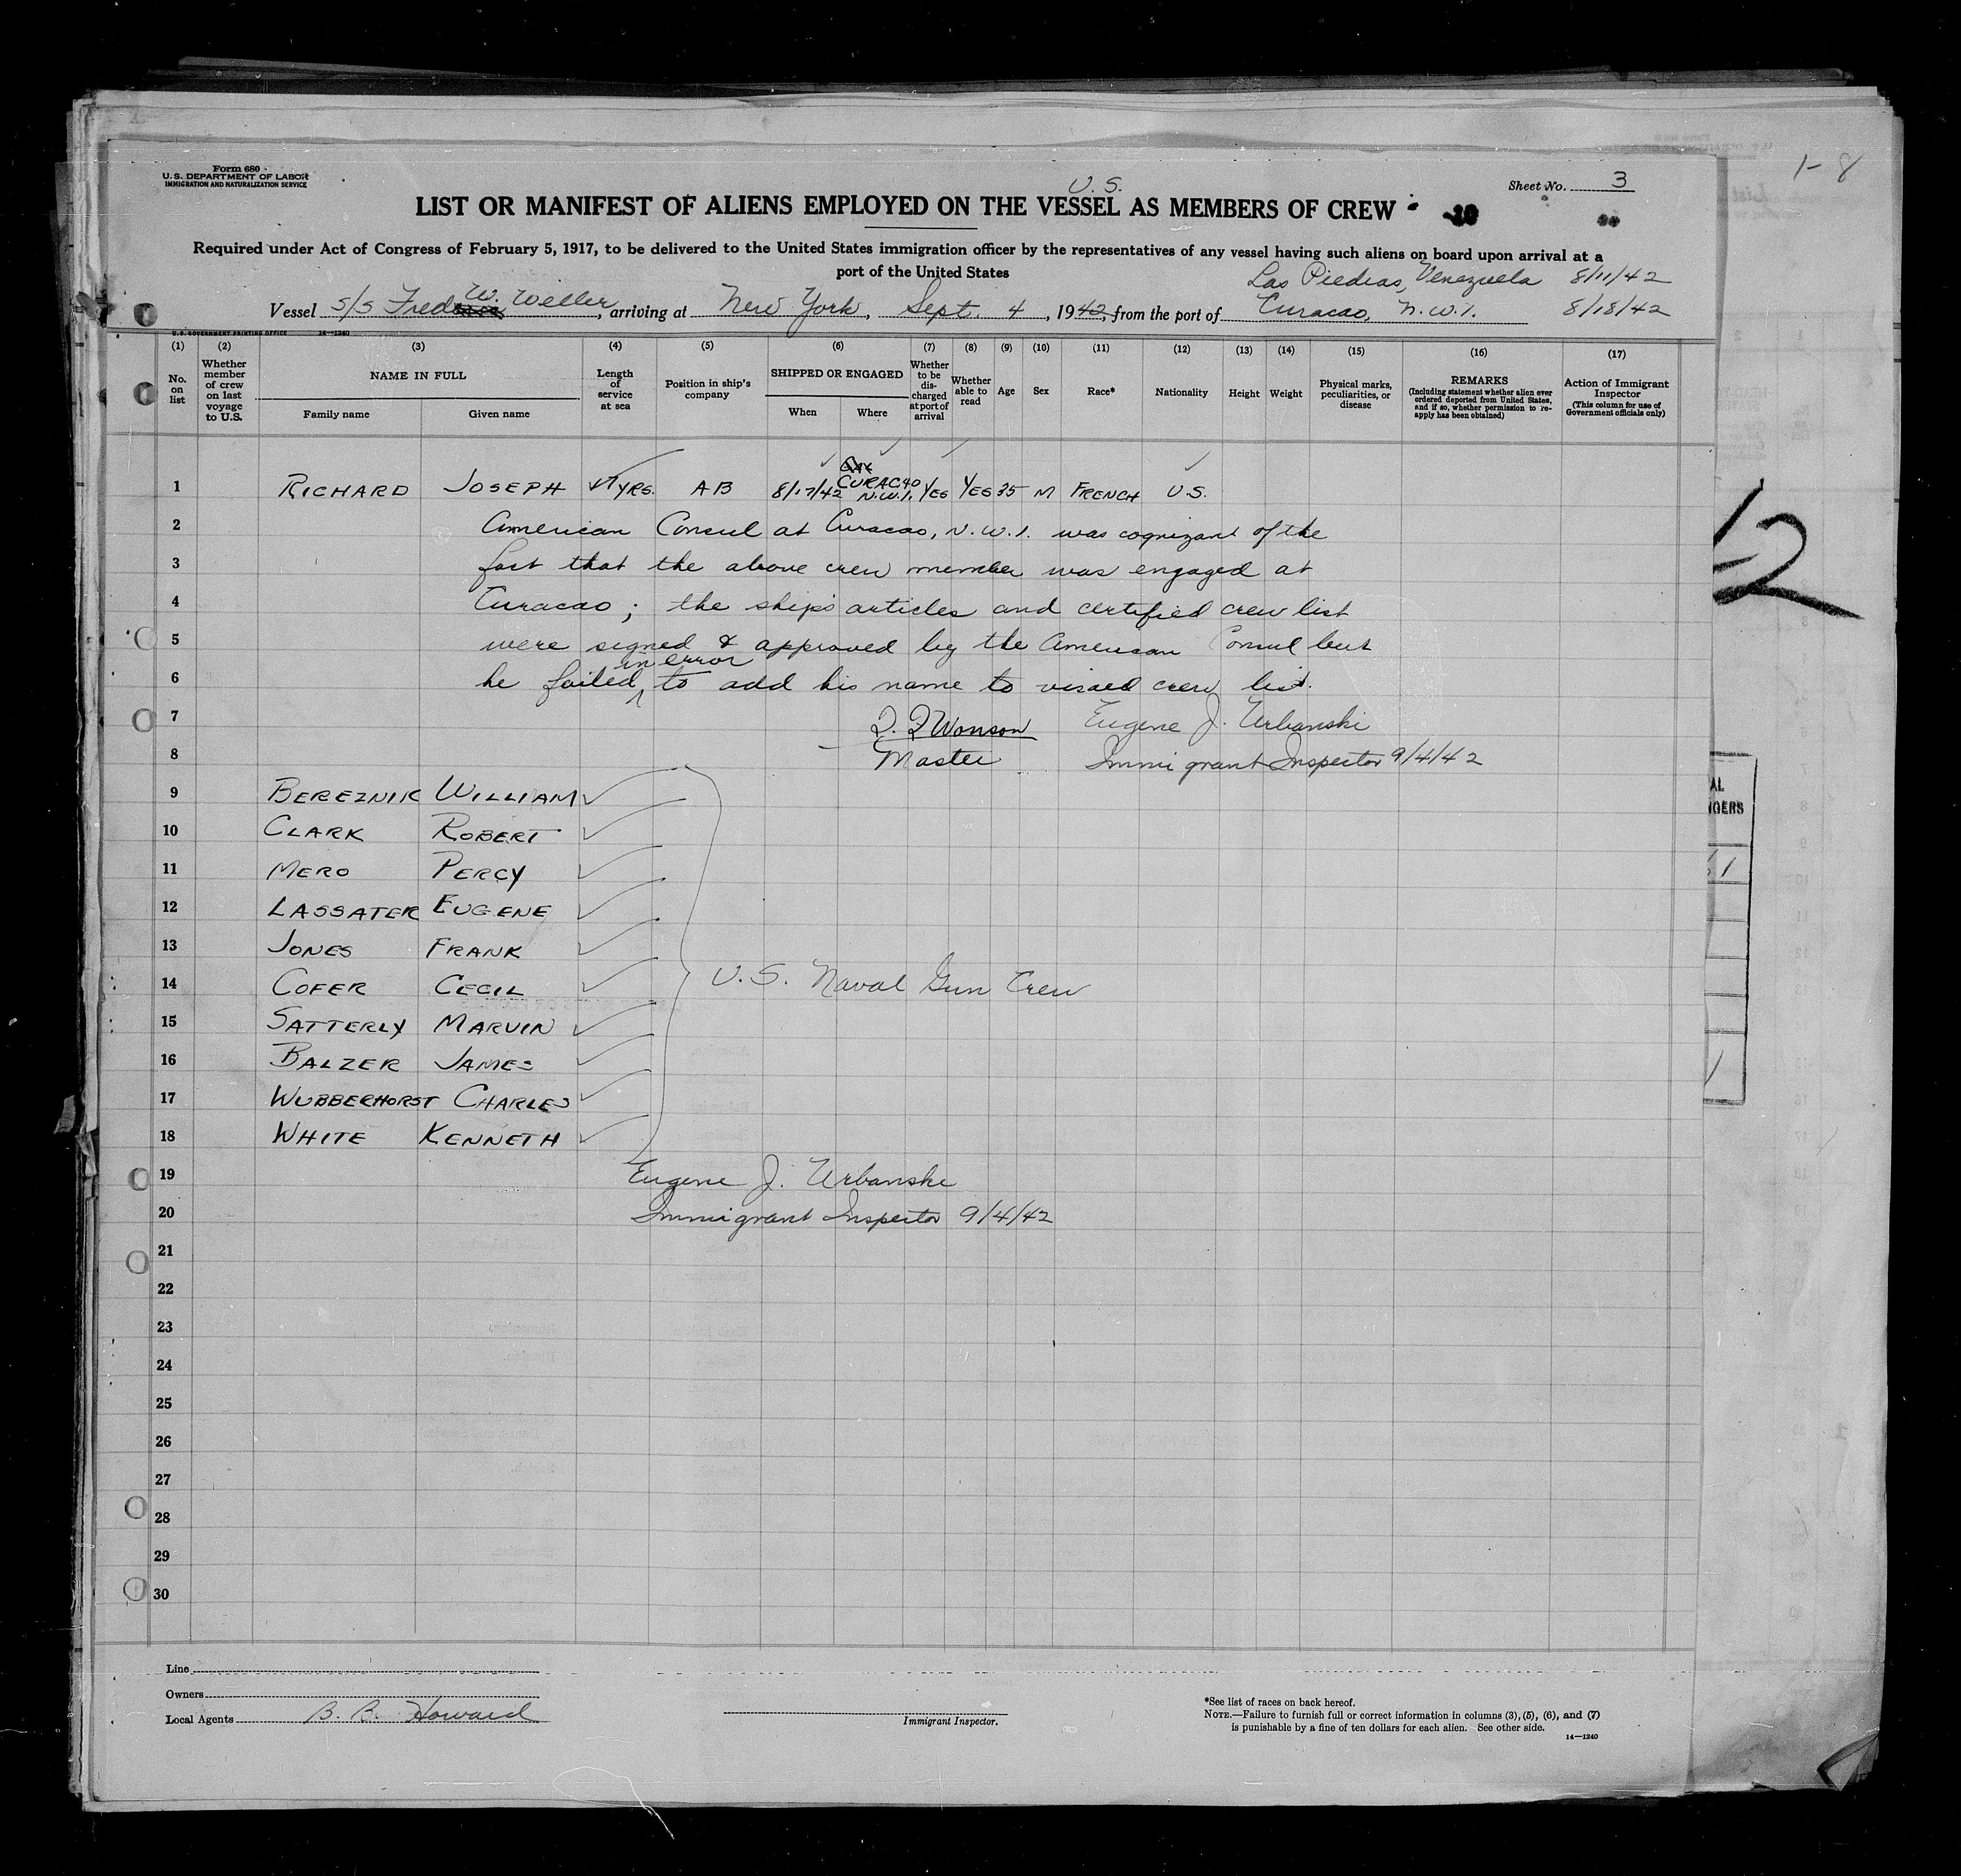 Form 680
U.S. DEPARTMENT OF LABOR
IMMIGRATION AND NATURALIZATION SERVICE
1-8
Sheet No. 3
U. S.
LIST OR MANIFEST OF ALIENS EMPLOYED ON THE VESSEL AS MEMBERS OF CREW
Required under Act of Congress of February 5, 1917, to be delivered to the United States immigration officer by the representatives of any vessel having such aliens on board upon arrival at a
port of the United States
Las Piedras, Venezuela 8/11/42
Vessel S/S Fred W. Weller, arriving at New York, Sept. 4, 1942, from the port of Curacao, N.W.I. 8/18/42
U.S. GOVERNMENT PRINTING OFFICE 14—1240
(1) (2) (3) (4) (5) (6) (7) (8) (9) (10) (11) (12) (13) (14) (15) (16) (17)
No. on list
Whether member of crew on last voyage to U.S.
NAME IN FULL
Family name
Given name
Length of service at sea
Position in ship's company
SHIPPED OR ENGAGED
When
Where
Whether to be discharged at port of arrival
Whether able to read
Age
Sex
Race*
Nationality
Height
Weight
Physical marks, peculiarities, or disease
REMARKS
(Including statement whether alien ever ordered deported from United States, and if so, whether permission to reapply has been obtained)
Action of Immigrant Inspector
(This column for use of Government officials only)
1 RICHARD JOSEPH 17 YRS. AB 8/17/42 CURACAO N.W.I. YES YES 35 M FRENCH U.S.
2 American Consul at Curacao, N.W.I. was cognizant of the
3 fact that the above crew member was engaged at
4 Curacao; the ship's articles and certified crew list
5 were signed & approved by the American Consul but
6 he failed in error to add his name to visaed crew list.
7 Wonson Eugene J. Urbanski
8 Master Immigrant Inspector 9/4/42
9 BEREZNIK WILLIAM
10 CLARK ROBERT
11 MERO PERCY
12 LASSATER EUGENE
13 JONES FRANK
14 COFER CECIL U.S. Naval Gun Crew
15 SATTERLY MARVIN
16 BALZER JAMES
17 WUBBERHORST CHARLES
18 WHITE KENNETH
19 Eugene J. Urbanski
20 Immigrant Inspector 9/4/42
21
22
23
24
25
26
27
28
29
30
12
Line
Owners
Local Agents B. B. Howard
Immigrant Inspector.
*See list of races on back hereof.
NOTE.—Failure to furnish full or correct information in columns (3), (5), (6), and (7)
is punishable by a fine of ten dollars for each alien. See other side.
14—1240